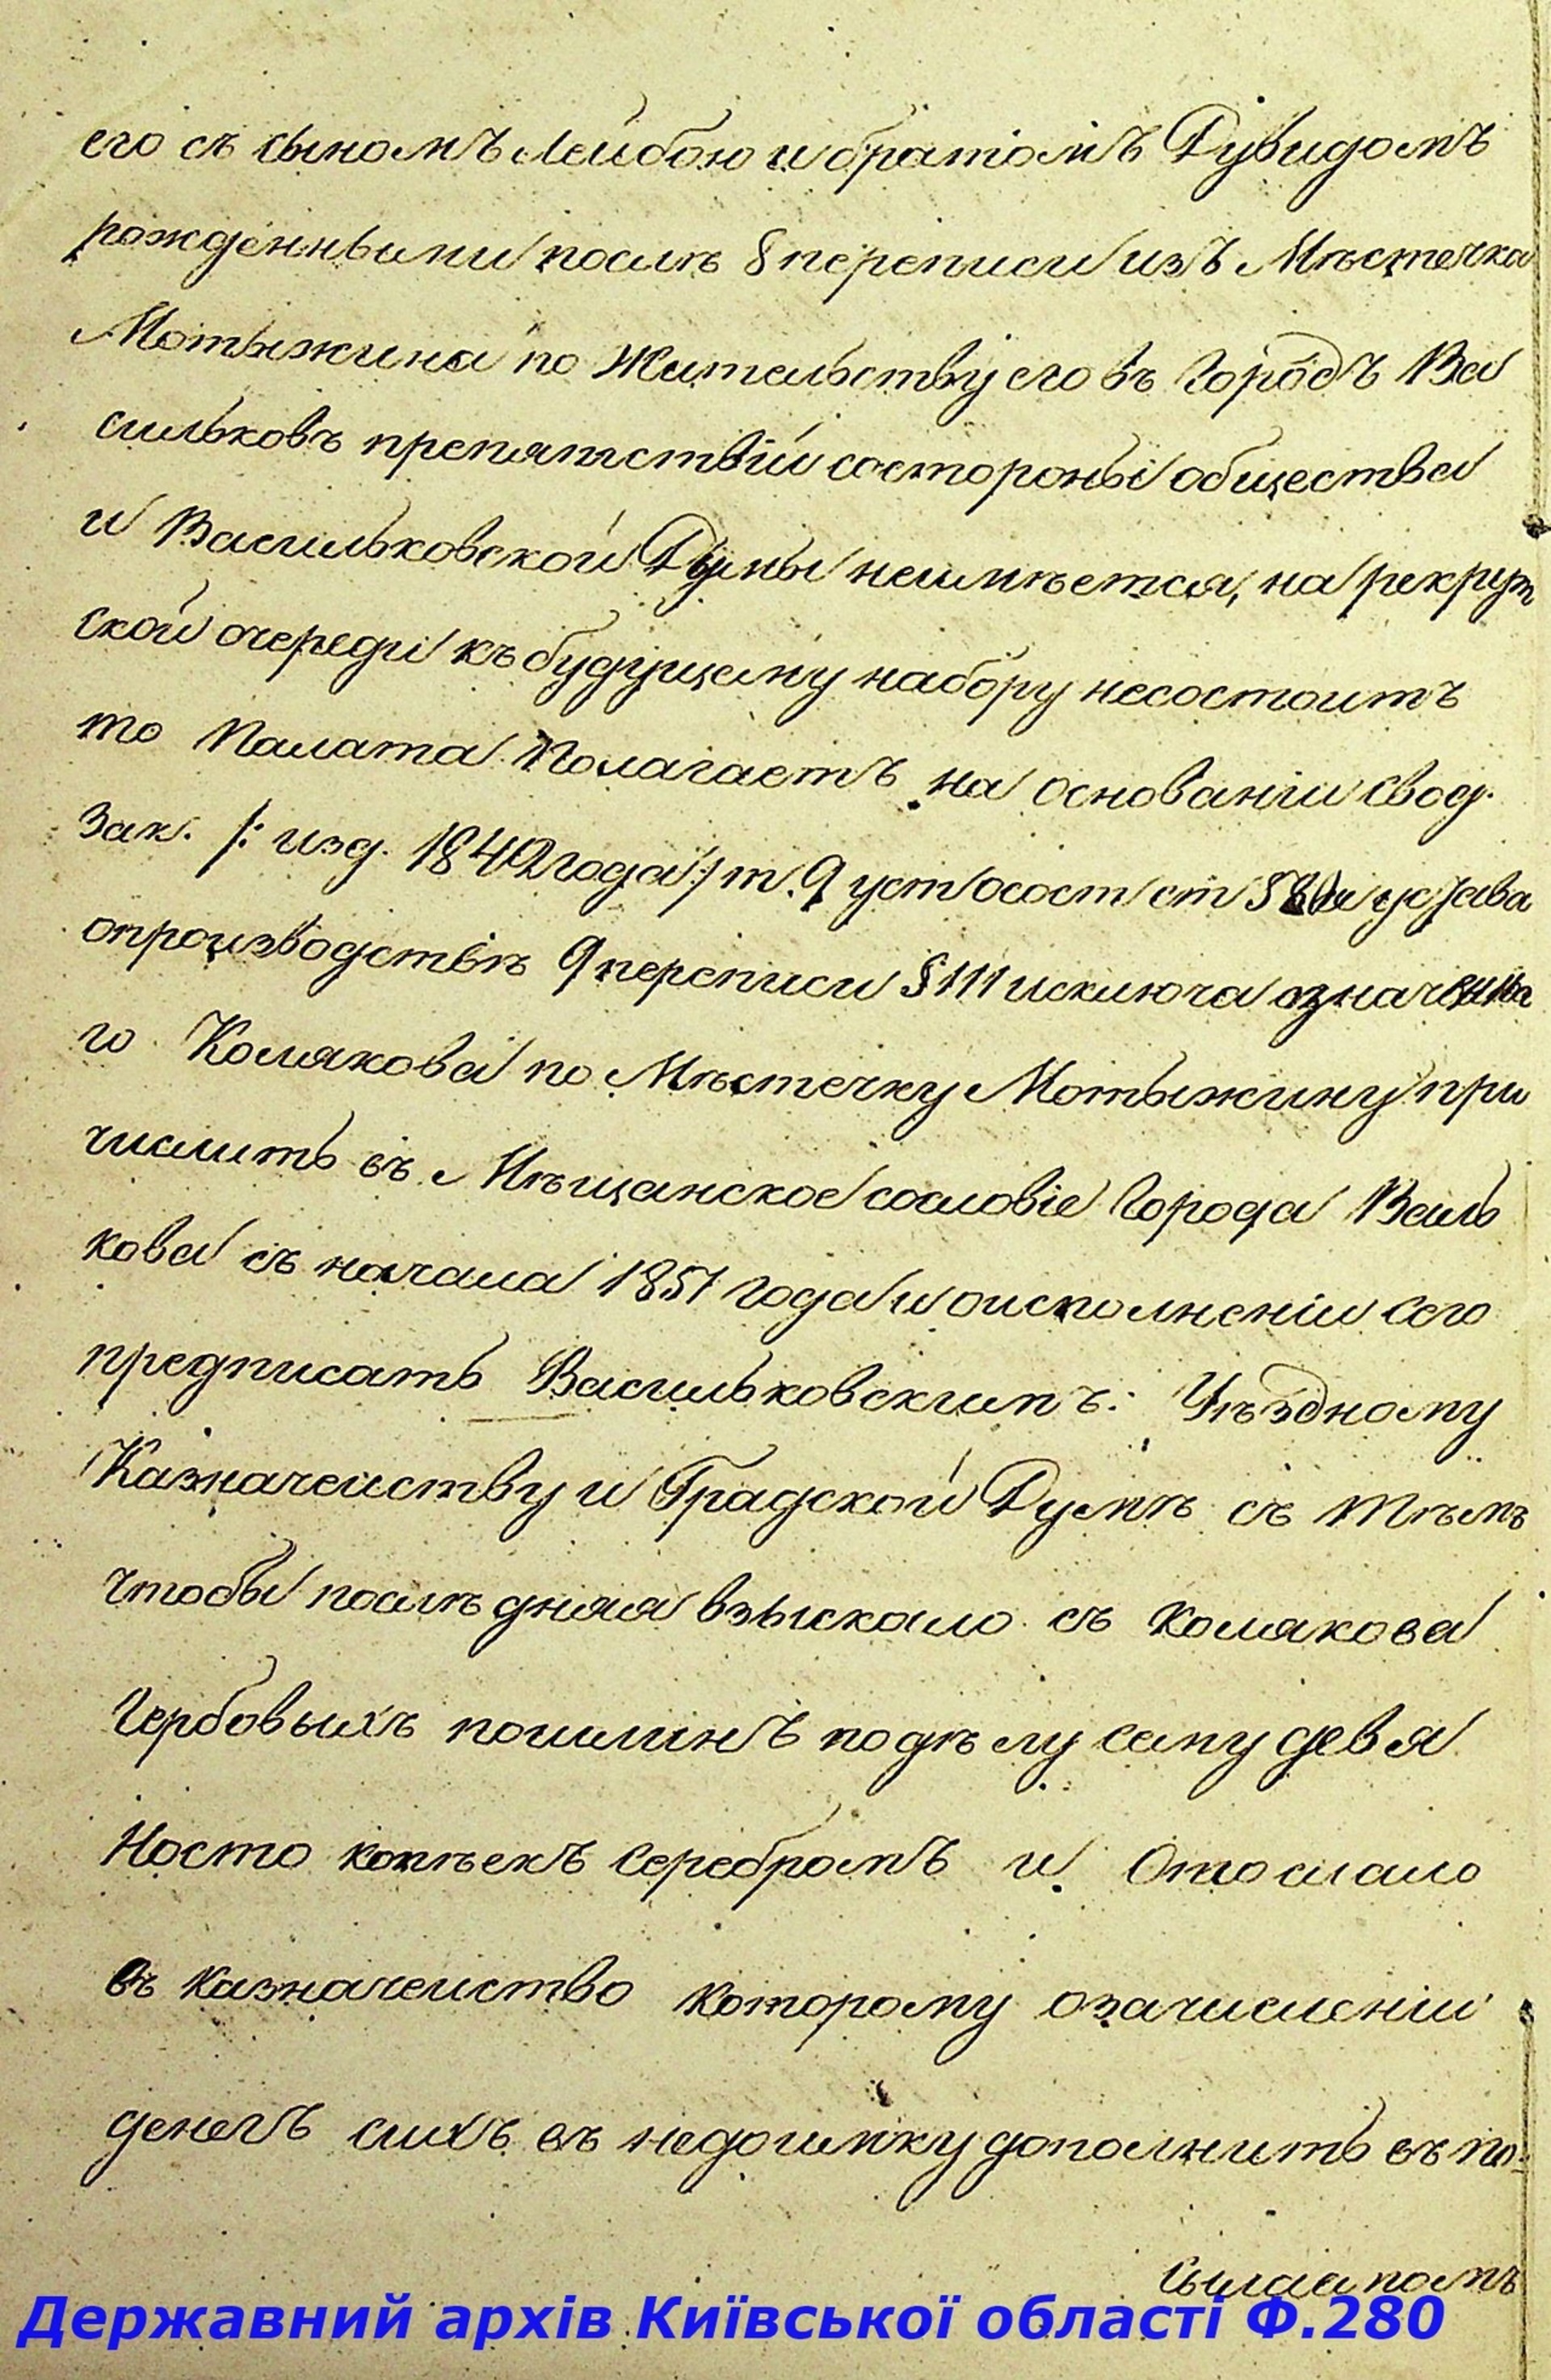 его съ сыномъ Лейбою и братомъ Дувидомъ
рожденными послѣ 8 переписи изъ Мѣстечка
Мотыжина по жительству его въ Городъ Ва
сильковъ препятствій состороны общества
и Васильковской Думы неимѣется, на рекрут
ской очереди къ будущему набору несостоитъ
то Палата Полагаетъ на основаніи Свод.
Зак. /: изд. 1842 года :/ т. 9 уст о сост ст устава
опроизводствѣ 9 переписи § 111 исключа означенна
го Комякова по Мѣстечку Мотыжину при
числить въ Мѣщанское сословіе Города Василь
кова съ начала 1851 года и оисполненіи сего
предписать Васильковскимъ: Уѣздному
Казначейству и Градской Думѣ съ тѣмъ
чтобы послѣдняя взыскало съ Комякова
Гербовыхъ пошлинъ по дѣлу сему девя
носто копѣекъ серебромъ и отослало
въ казначейство которому озачисленіи
денегъ сихъ въ недоимку дополнить въ по
Державний архів Київської області Ф.280